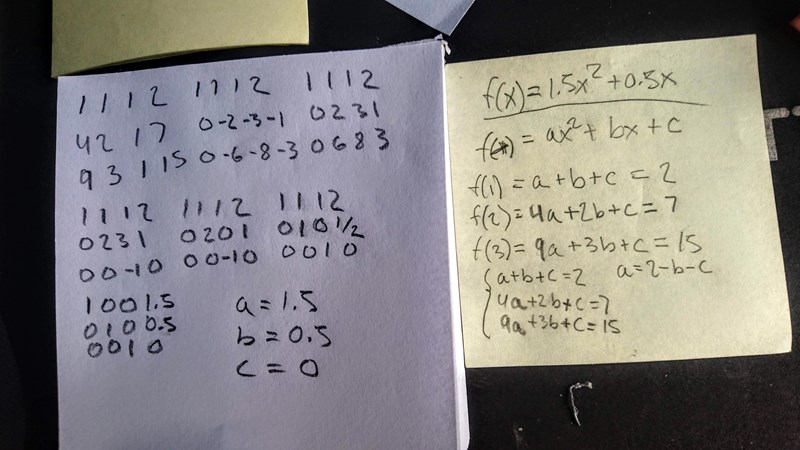 1 1 1 2   1 1 1 2   1 1 1 2
4 2 1 7   0 -2 -3 -1   0 2 3 1
9 3 1 15   0 -6 -8 -3   0 6 8 3
1 1 1 2   1 1 1 2   1 1 1 2
0 2 3 1   0 2 0 1   0 1 0 1/2
0 0 -1 0   0 0 -1 0   0 0 1 0
1 0 0 1.5   a = 1.5
0 1 0 0.5   b = 0.5
0 0 1 0   c = 0
f(x) = 1.5x² + 0.5x
f(x) = ax² + bx + c
f(1) = a + b + c = 2
f(2) = 4a + 2b + c = 7
f(3) = 9a + 3b + c = 15
{ a+b+c=2   a=2-b-c
4a+2b+c=7
9a+3b+c=15